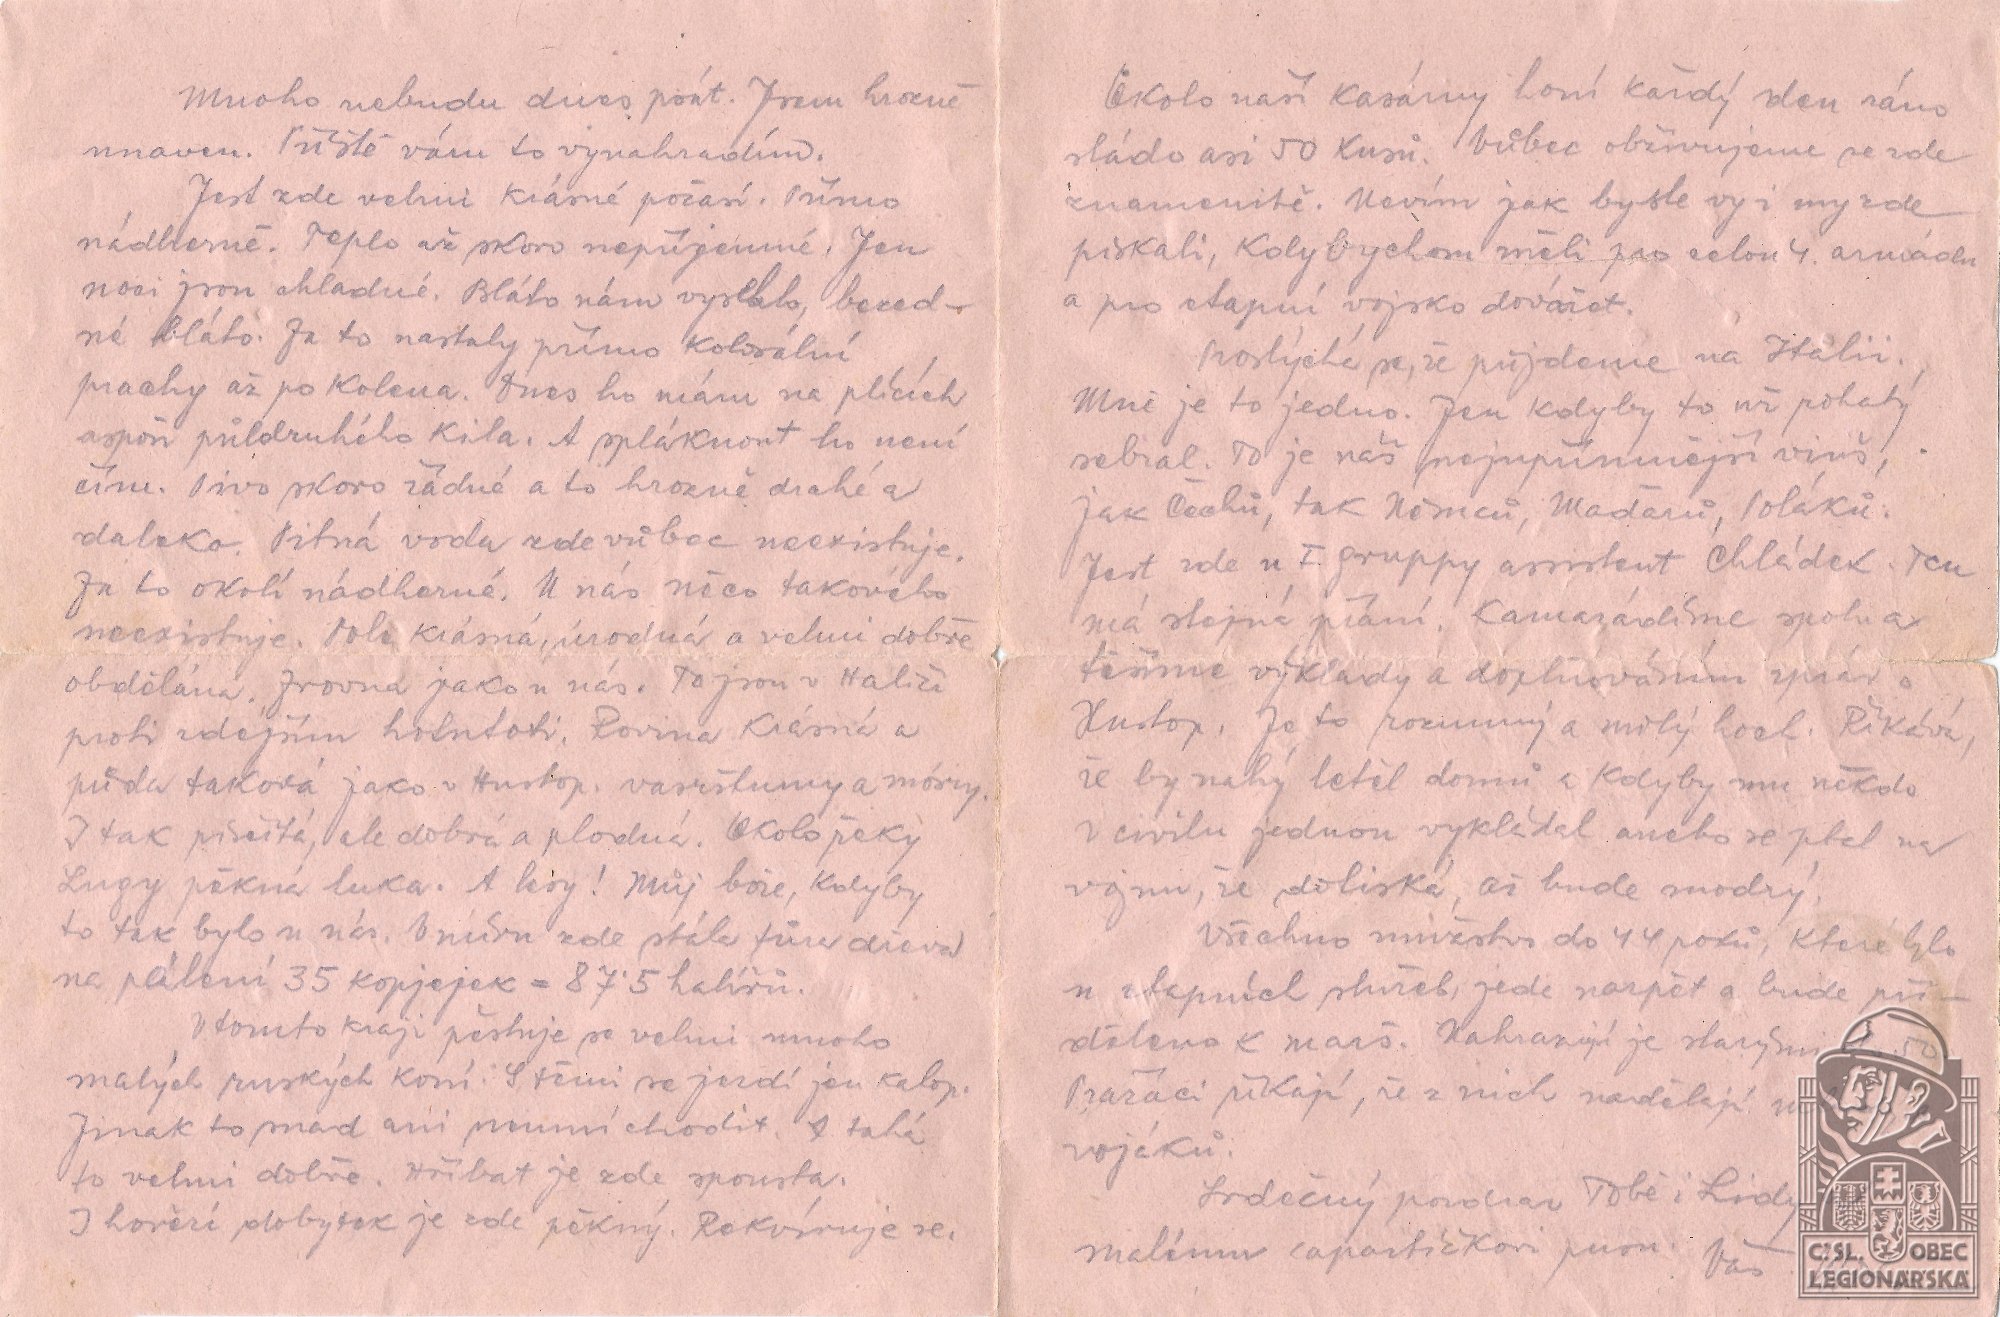 Mnoho nebudu dnes psát. Jsem hrozně
unaven. Příště vám to vynahradím.
Jest zde velmi krásné počasí. Přímo
nádherné. Teplo až skoro nepříjemné. Jen
noci jsou chladné. Bláto nám vyschlo, bezed-
né bláto. Za to nastaly přímo kolosální
prachy až po kolena. Dnes ho mám na plících
aspoň půldruhého kila. A spláknout ho není
čím. Pivo skoro žádné a to hrozně drahé a
daleko. Pitná voda zde vůbec neexistuje.
Za to okolí nádherné. U nás něco takového
neexistuje. Pole krásná, úrodná a velmi dobře
obdělána. Zrovna jako u nás. To jsou v Haliči
proti zdejším hotntoti. Rovina krásná a
půda taková jako v Hustop. vasrštumy a móry.
I tak písčitá, ale dobrá a plodná. Okolo řeky
Lugy pěkná luka. A lesy! Můj bože, kdyby
to tak bylo u nás. V míru zde stála fůra dřeva
na pálení 35 kopjejek = 87·5 haléřů.
V tomto kraji pěstuje se velmi mnoho
malých ruských koní. S těmi se jezdí jen kalop.
Jinak to snad ani neumí chodit. A tahá
to velmi dobře. Hříbat je zde spousta.
I hovězí dobytek je zde pěkný. Rekvíruje se.
Okolo naší kasárny honí každý den ráno
stádo asi 50 kusů. Vůbec obživujeme se zde
znamenitě. Nevím jak byste vy i my zde
pískali, kdybychom měli pro celou 4. armádu
a pro etapní vojsko dovážet.
Proslýchá se, že půjdeme na Itálii.
Mně je to jedno. Jen kdyby to už pohatý
sebral. To je náš nejupřímnější vinš,
jak Čechů, tak Němců, Maďarů, Poláků.
Jest zde u I. gruppy assistent Chládek. Ten
má stejná přání. Kamarádíme spolu a
těšíme výklady a doplňováním zpráv o
Hustop. Je to rozumný a milý hoch. Říkává,
že by nahý letěl domů a kdyby mu někdo
v civilu jednou vykládal anebo se ptal na
vojnu, že doliská, až bude modrý.
Všechno mužstvo do 44 roků, které bylo
u etapních služeb, jede nazpět a bude při-
děleno k marš. Nahrazují je staršími 50
Pražáci říkají, že z nich nadělají
vojáků.
Srdečný pozdrav Tobě i Lidy
malému capartíčkovi pusu. Váš
C.SL. OBEC
LEGIONÁŘSKÁ